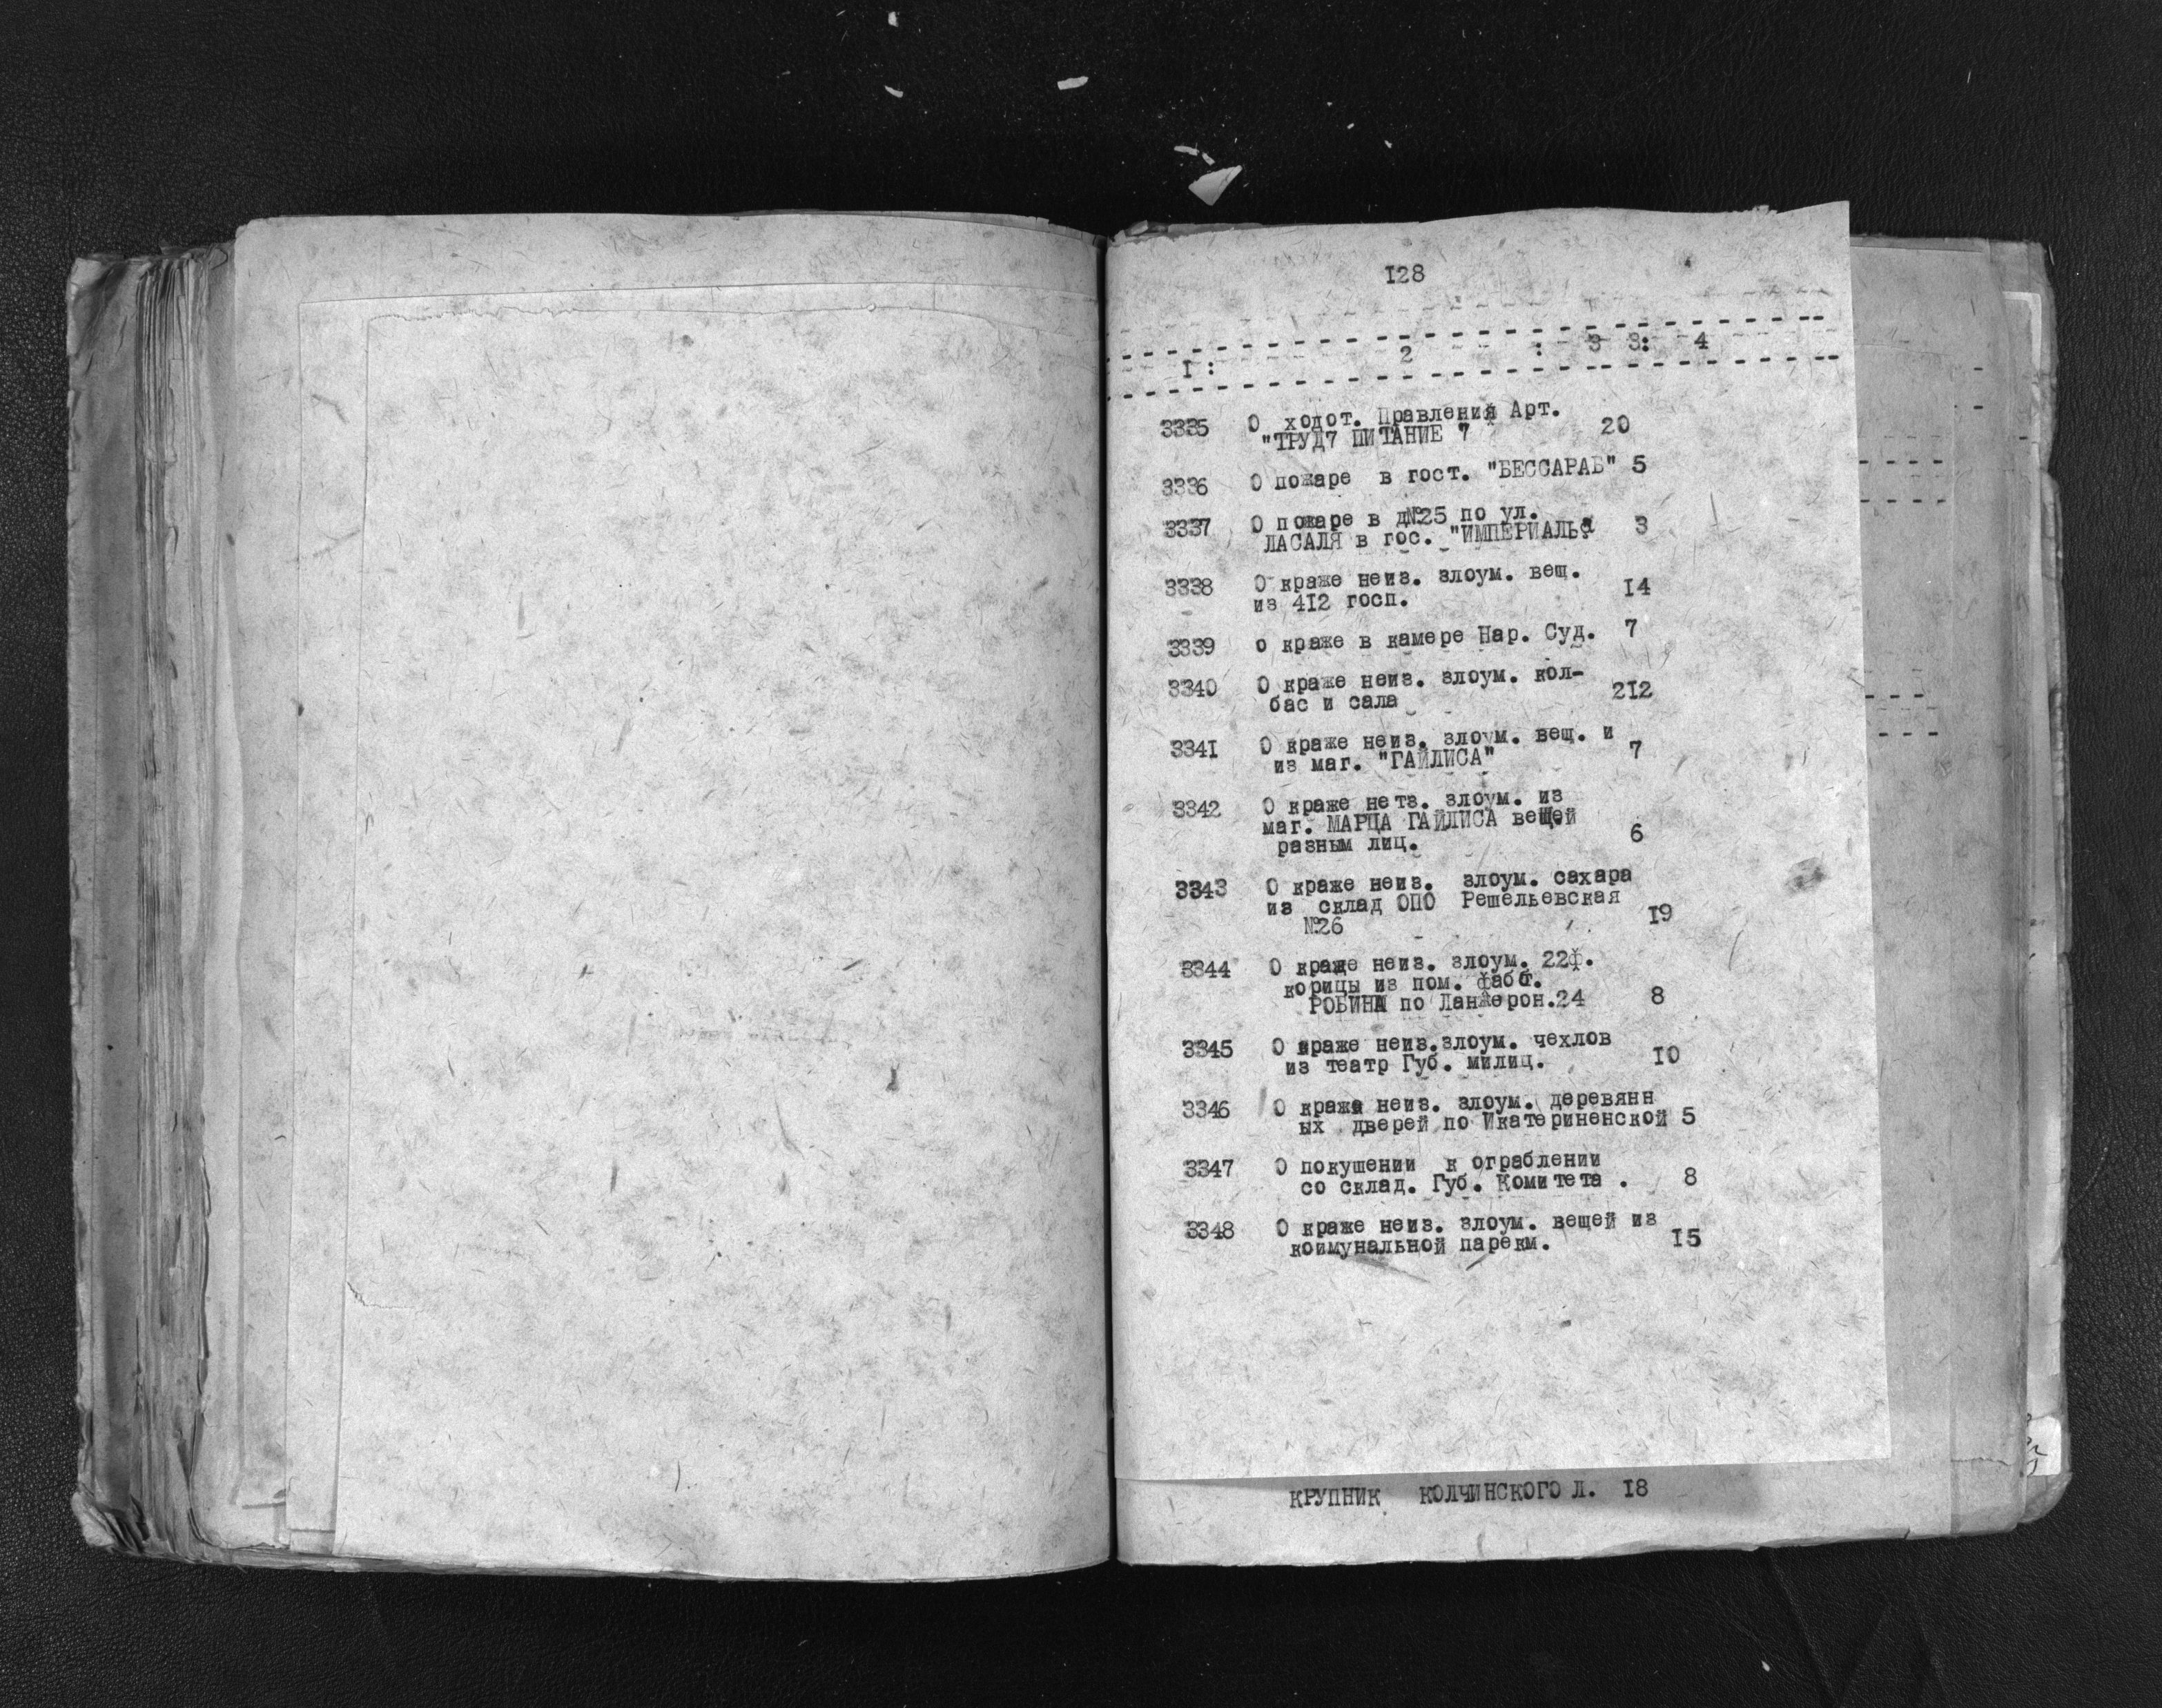 128
I : 2 : 3 3: 4
3335 О ходот. Правления Арт.
"ТРУД7 ПИТАНИЕ 7 20
3336 О пожаре в гост. "БЕССАРАБ" 5
3337 О пожаре в д№25 по ул.
ЛАСАЛЯ в гос. "ИМПЕРИАЛЬ 3
3338 О краже неиз. злоум. вещ.
из 4I2 госп. I4
3339 о краже в камере Нар. Суд. 7
3340 О краже неиз. злоум. кол-
бас и сала 2I2
334I О краже неиз. злоум. вещ. и
из маг. "ГАЙЛИСА" 7
3342 О краже нетз. злоум. из
маг. МАРЦА ГАЙЛИСА вещей
разным лиц. 6
3343 О краже неиз. злоум. сахара
из склад ОПО Решельевская
№26 I9
3344 О краже неиз. злоум. 22ф.
корицы из пом.
РОБИНА по Ланжерон.24 8
3345 О краже неиз.злоум. чехлов
из театр Губ. милиц. I0
3346 О кража неиз. злоум. деревянн
ых дверей по Икатериненской 5
3347 О покушении к ограблении
со склад. Губ. Комитета . 8
3348 О краже неиз. злоум. вещей из
коимунальной парекм. I5
КРУПНИК КОЛЧИНСКОГО Л. I8